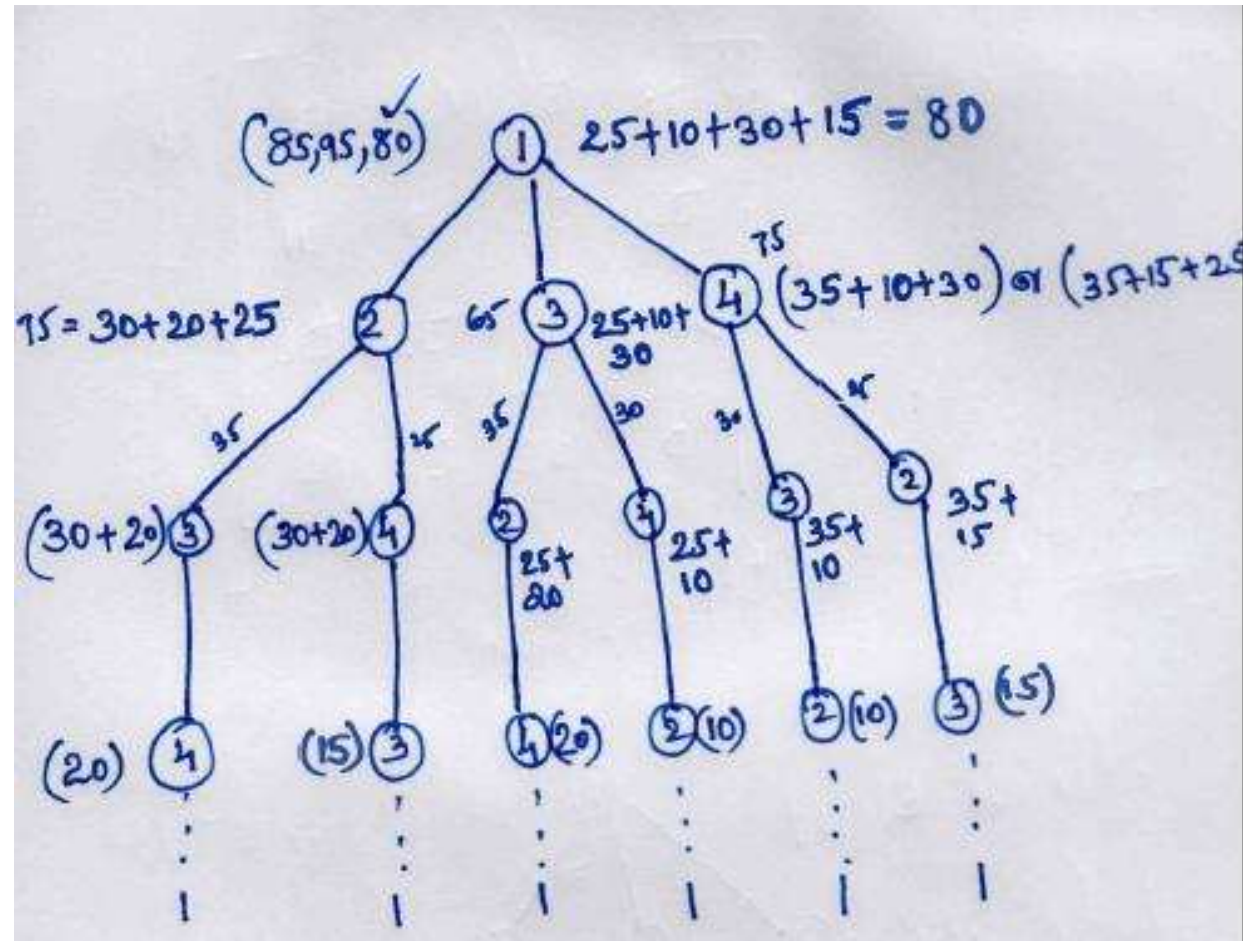 (85,95,80) ✓ 1 25+10+30+15 = 80
75
75 = 30+20+25 2 65 3 25+10+ 30 4 (35+10+30) or (35+15+25
35 25 35 30 30 25
(30+20) 3 (30+20) 4 2 25+ 20 4 25+ 10 3 35+ 10 2 35+ 15
(20) 4 (15) 3 4 (20) 2 (10) 2 (10) 3 (15)
1 1 1 1 1 1